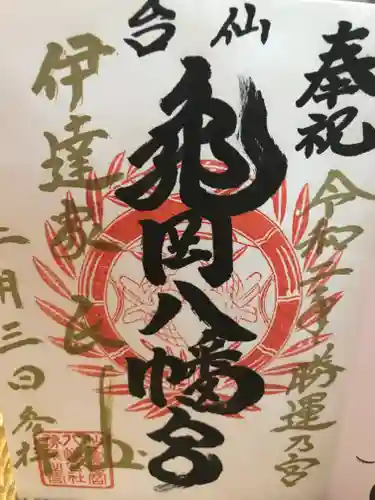 奉祝
令和二年 勝運乃宮
仙台
亀岡八幡宮
伊達家
二月三日参拝